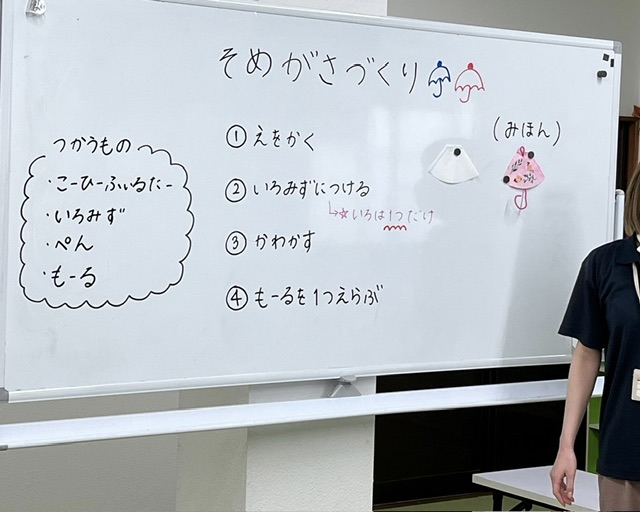 そめがさづくり
つかうもの
・こーひーふぃるたー
・いろみず
・ぺん
・もーる
① えをかく
② いろみずにつける
↳☆いろは1つだけ
③ かわかす
④ もーるを1つえらぶ
(みほん)